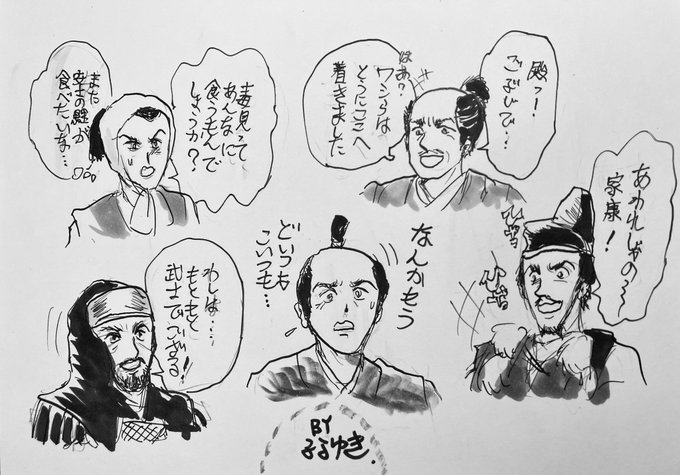 殿っー!
ございで…
はあ?
ワシらは
とうにここへ
着きました
毒見って
あんなに
食うもんで
しょうか?
また
の鯉が
食べたいな…
あわれじゃの〜〜
家康!
なんかもう
どいつも
こいつも…
わしは…
もともと
武士でござる!
BY
ゆき.